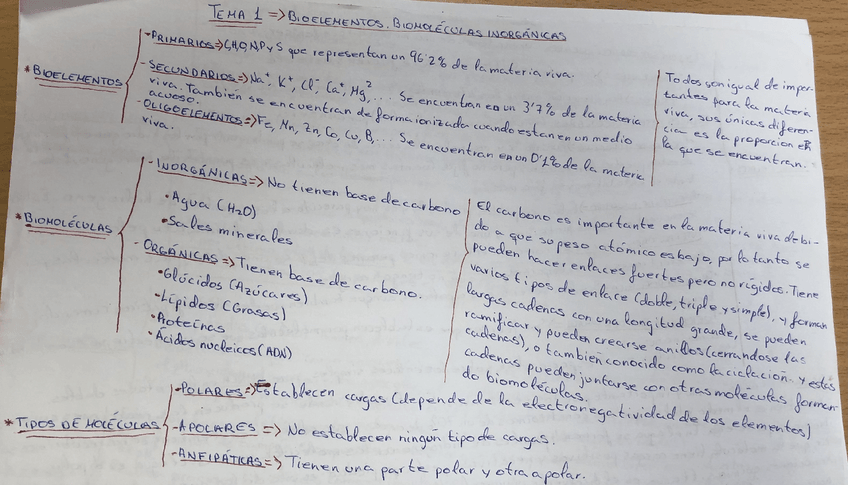 TEMA 1 => BIOELEMENTOS. BIOMOLÉCULAS INORGÁNICAS
* BIOELEMENTOS
- PRIMARIOS => C,H,O,N,P y S que representan un 96'2% de la materia viva.
- SECUNDARIOS => Na⁺, K⁺, Cl⁻, Ca⁺, Mg²,... Se encuentran en un 3'7% de la materia
viva. También se encuentran de forma ionizada cuando estan en un medio
acuoso.
- OLIGOELEMENTOS => Fe, Mn, Zn, Co, Cu, B,... Se encuentran en un 0'1% de la materia
viva.
Todos son igual de impor-
tantes para la materia
viva, sus únicas diferen-
cia es la proporcion en
la que se encuentran.
* BIOMOLÉCULAS
- INORGÁNICAS => No tienen base de carbono
• Agua (H₂O)
• Sales minerales
- ORGÁNICAS => Tienen base de carbono.
• Glúcidos (Azúcares)
• Lípidos (Grasas)
• Proteínas
• Ácidos nucleicos (ADN)
El carbono es importante en la materia viva debi-
do a que su peso atómico es bajo, por lo tanto se
pueden hacer enlaces fuertes pero no rígidos. Tiene
varios tipos de enlace (doble, triple y simple), y forman
largas cadenas con una longitud grande, se pueden
ramificar y pueden crearse anillos (cerrandose las
cadenas), o tambien conocido como la ciclación. y estas
cadenas pueden juntarse con otras moléculas forman-
do biomoléculas.
* TIPOS DE MOLÉCULAS
- POLARES => Establecen cargas (depende de la electronegatividad de los elementos)
- APOLARES => No establecen ningún tipo de cargas.
- ANFIPÁTICAS => Tienen una parte polar y otra apolar.